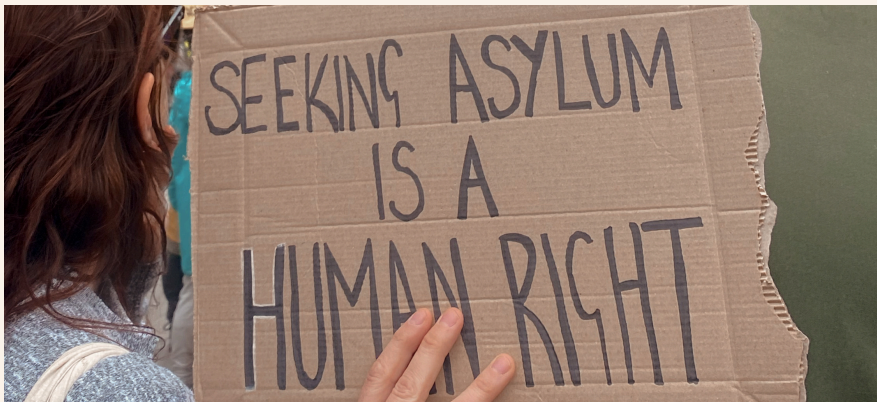 SEEKING ASYLUM
IS A
HUMAN RIGHT